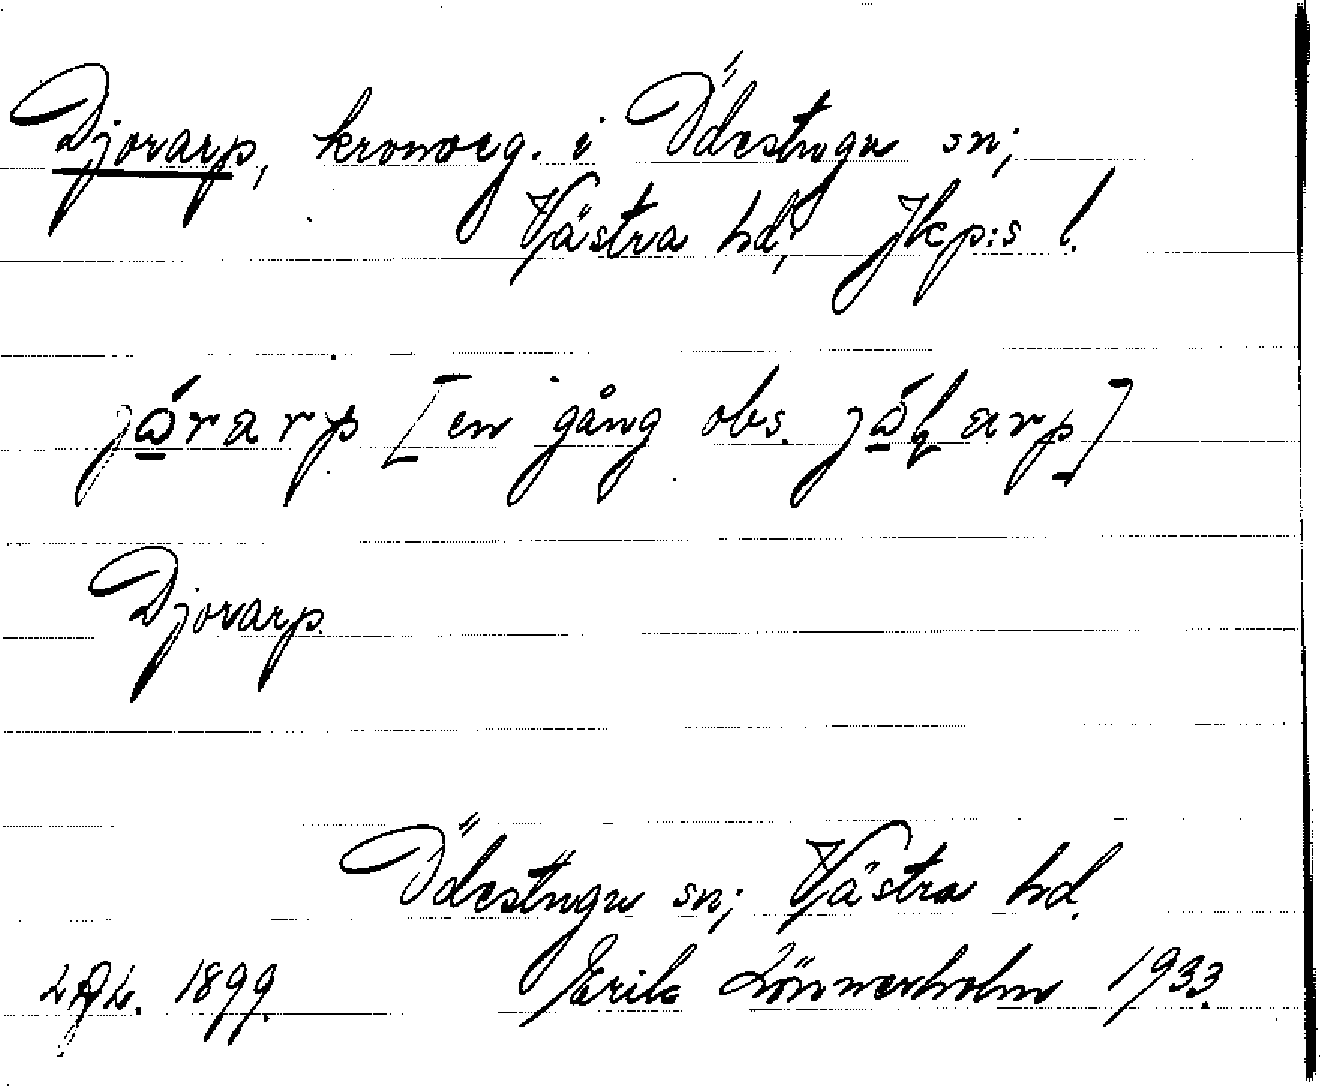 Djorarp, kronoeg. i Ödestugu sn;
Västra hd; Jkp:s l.
jårarp [en gång obs. jåɽarp]
Djorarp.
Ödestugu sn; Västra hd.
1899. Erik Lönnerholm 1933.